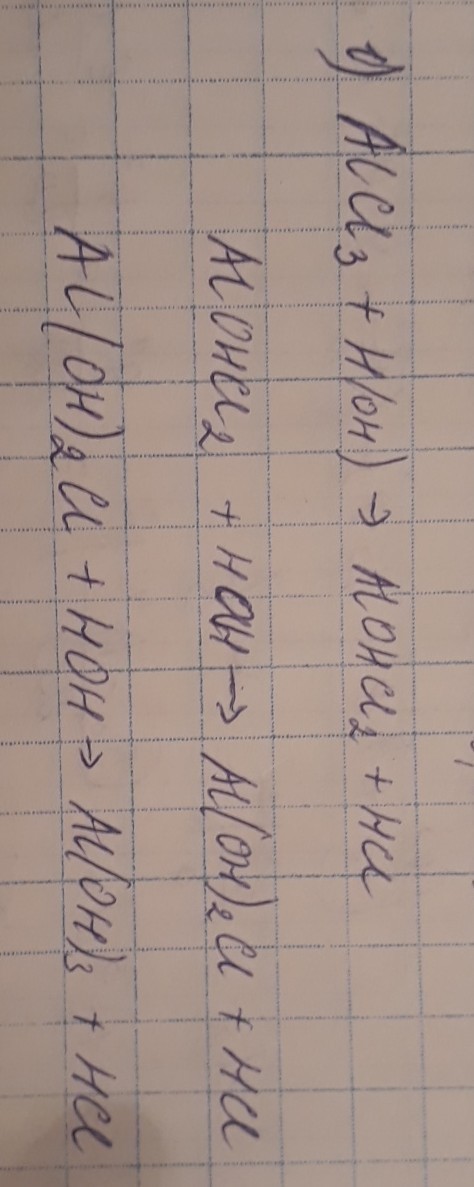 1) AlCl₃ + H(OH) → AlOHCl₂ + HCl
AlOHCl₂ + HOH → Al(OH)₂Cl + HCl
Al(OH)₂Cl + HOH → Al(OH)₃ + HCl